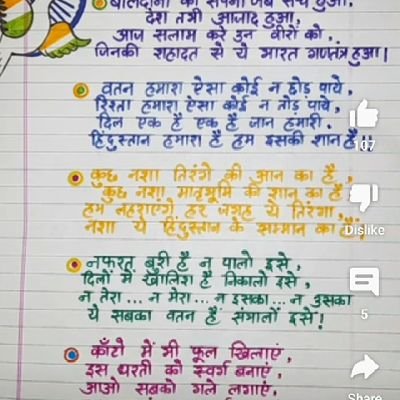 बलिदानों का सपना जब सच हुआ,
देश तभी आजाद हुआ,
आज सलाम करे उन वीरों को,
जिनकी शहादत से ये भारत गणतंत्र हुआ।
वतन हमारा ऐसा कोई न छोड़ पाये,
रिश्ता हमारा ऐसा कोई न तोड़ पाये,
दिल एक है एक है जान हमारी,
हिंदुस्तान हमारा है हम इसकी शान है।।
कुछ नशा तिरंगे की आन का है,
कुछ नशा मातृभूमि की शान का है
हम लहराएंगे हर जगह ये तिरंगा,
नशा ये हिंदुस्तान के सम्मान का है।
नफरत बुरी है न पालो इसे,
दिलों में खालिश है निकालो इसे,
न तेरा... न मेरा... न इसका... न उसका
ये सबका वतन है संभालों इसे!
काँटो में भी फूल खिलाएं,
इस धरती को स्वर्ग बनाएं,
आओ सबको गले लगाएं,
107
Dislike
5
Share